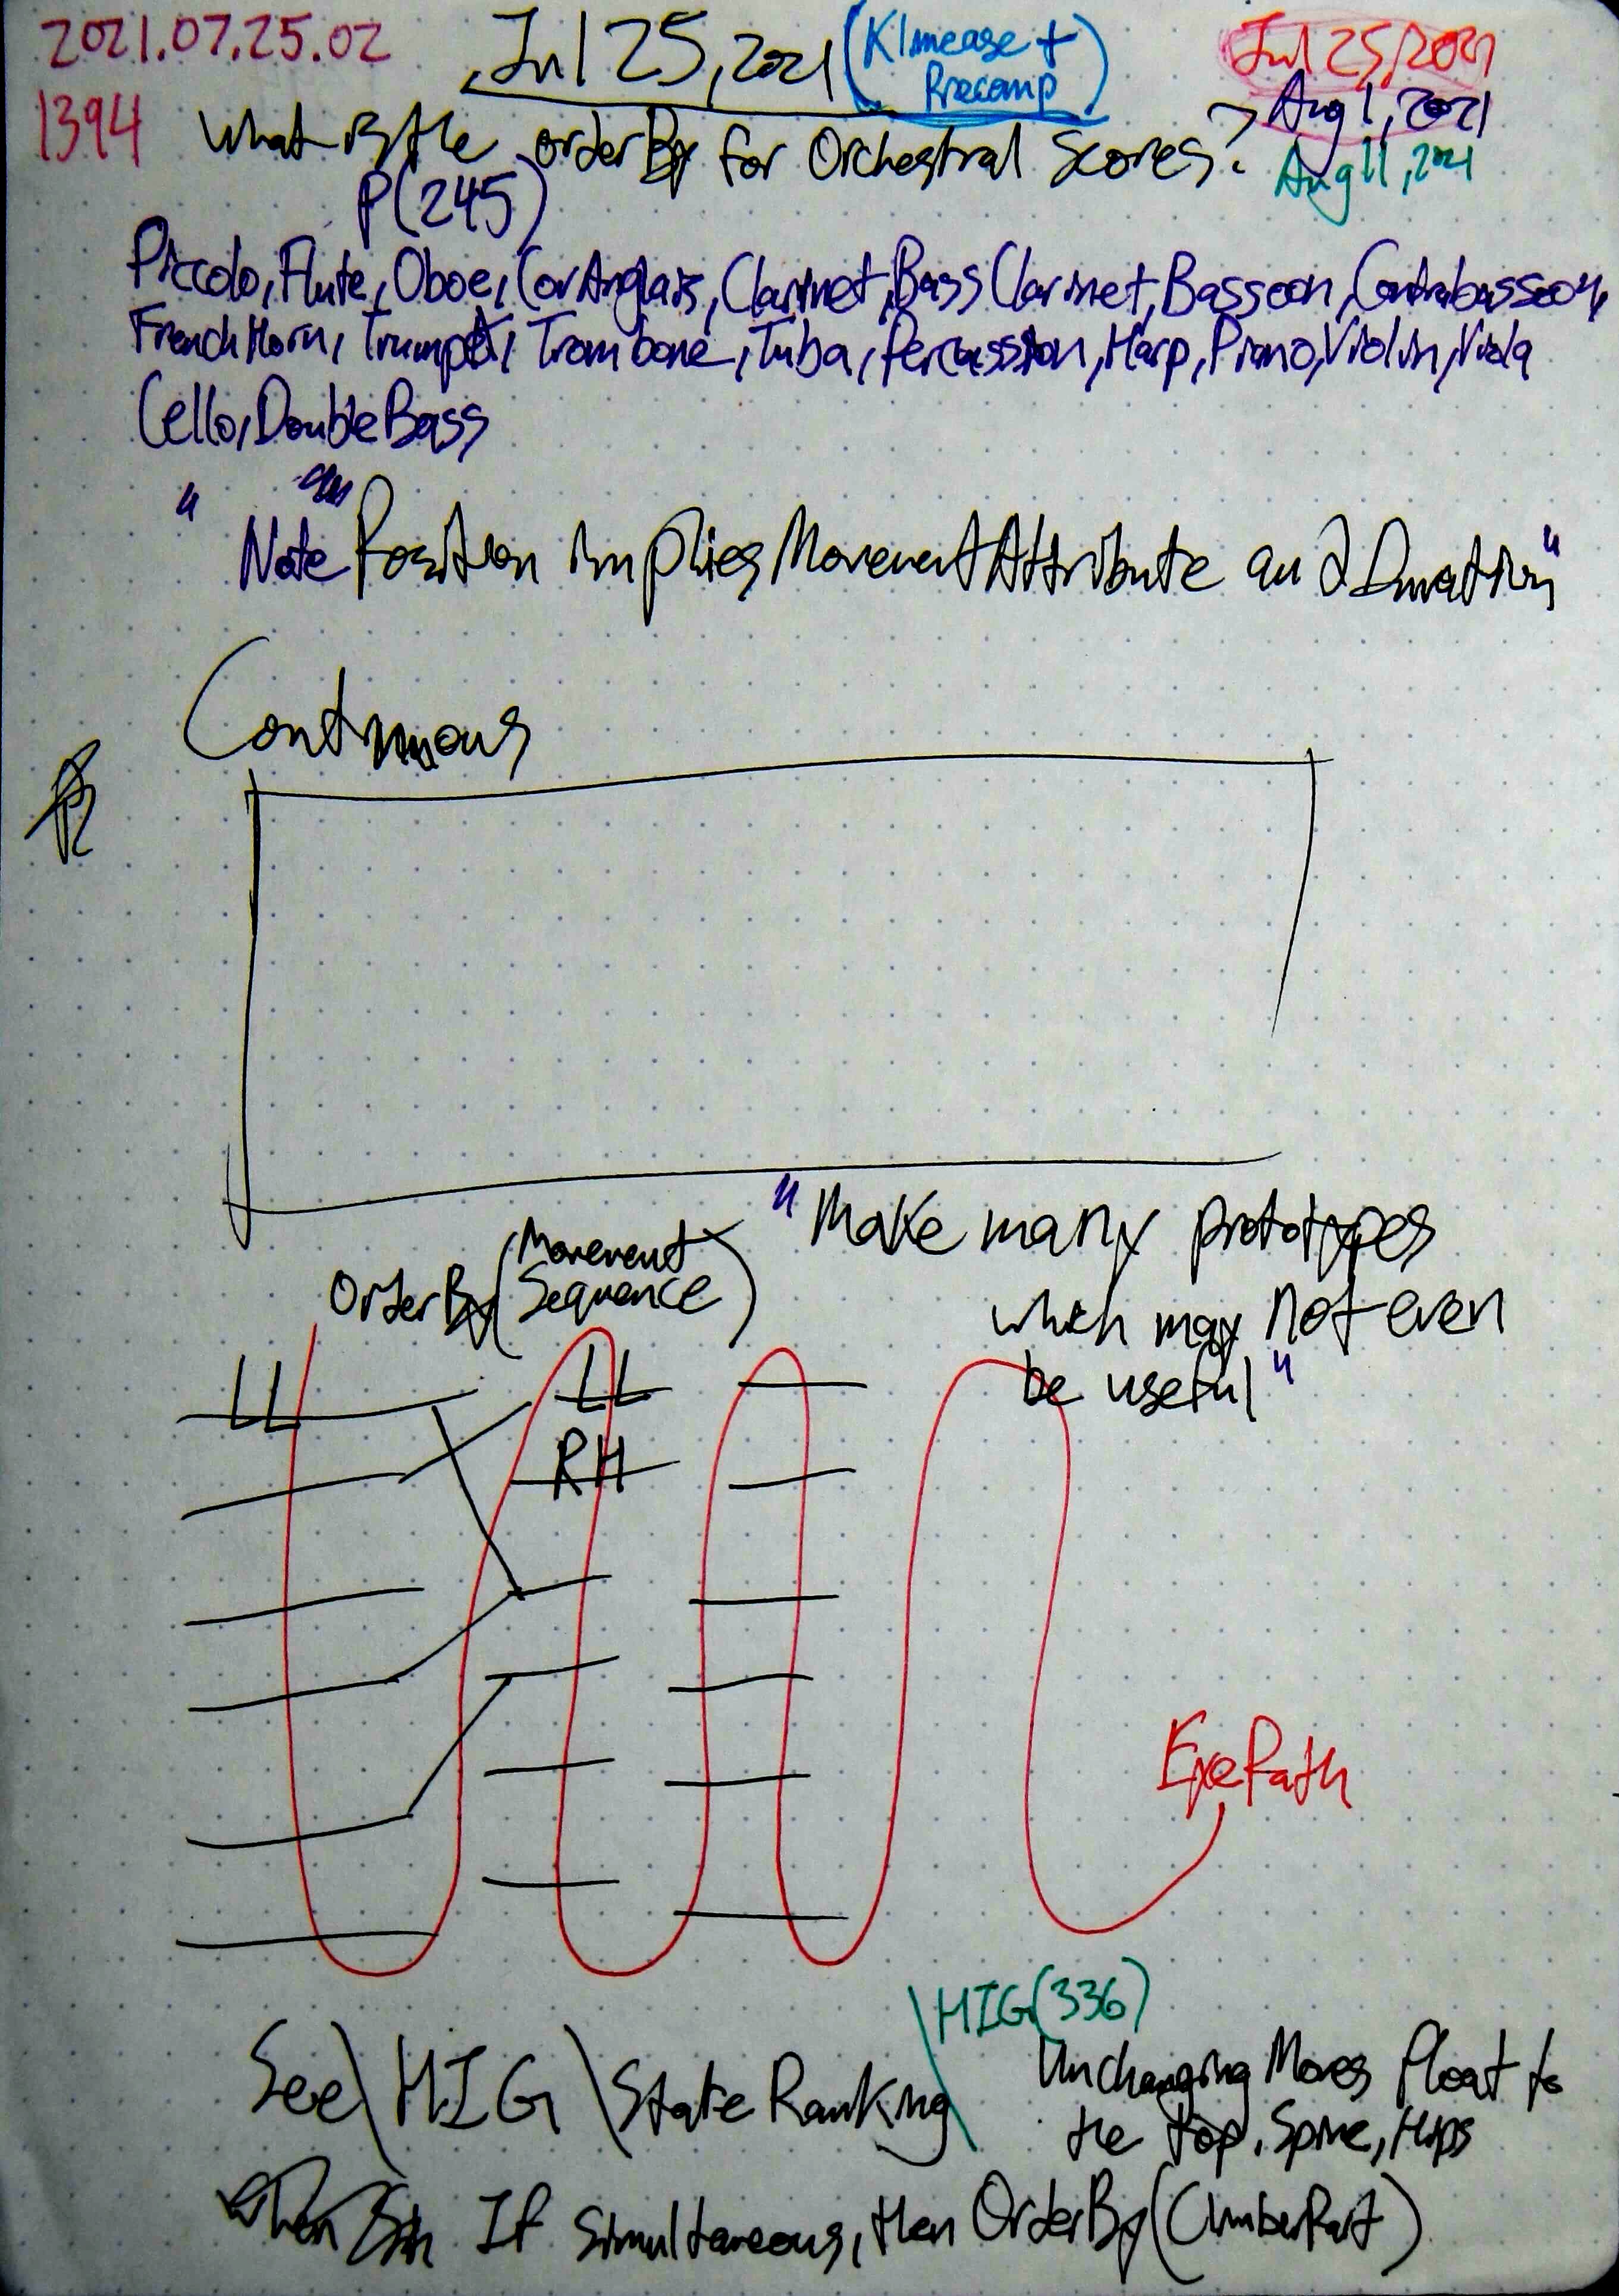 2021.07.25.02
Jul 25, 2021 (Klmease +
Precomp)
Jul 25, 2021
1394
Aug 1, 2021
What is the orderBy for Orchestral Scores?
Aug 11, 2021
P(245)
Piccolo, Flute, Oboe, Cor Anglais, Clarinet, Bass Clarinet, Bassoon, Contrabassoon,
French Horn, Trumpet, Trombone, Tuba, Percussion, Harp, Piano, Violin, Viola
Cello, Double Bass
" Note Position implies Movement Attribute and Duration"
Continuous
"Make many prototypes
which may not even
be useful"
OrderBy(Movement
Sequence)
LL LL
RH
ExePath
\HIG(336)
See\HIG\StateRanking
Unchanging Moves float to
the top. Spine, Hips
When If simultaneous, then OrderBy(ClimberPart)